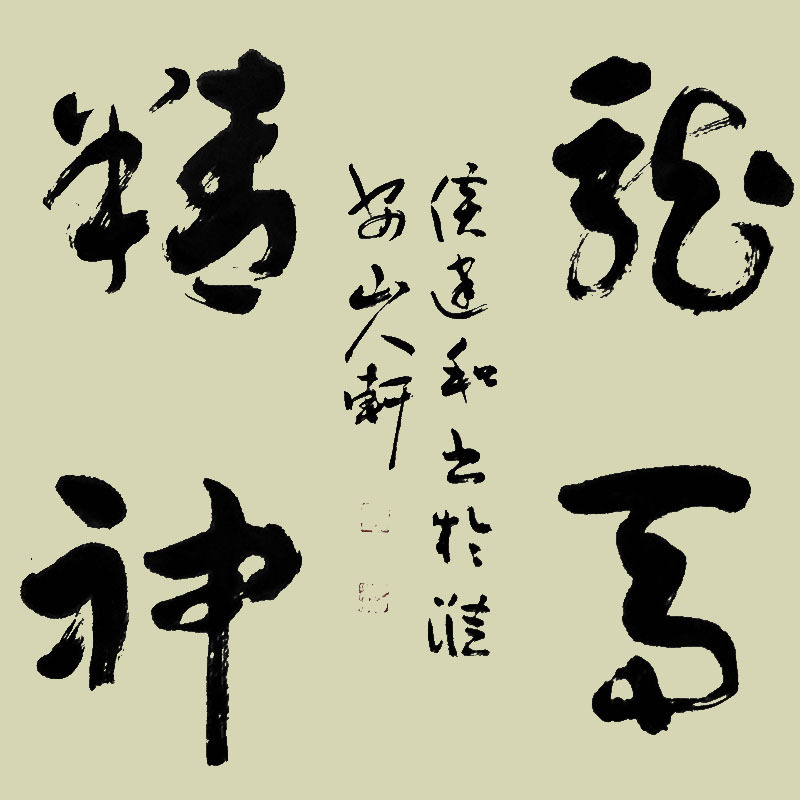 龍馬
精神
侯達和書於濰
安山人軒